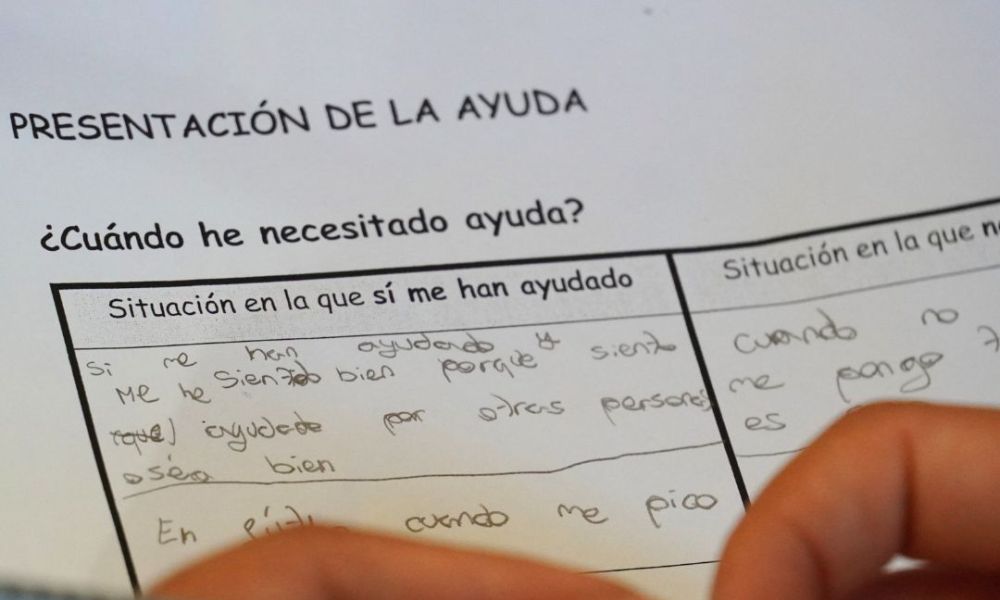 PRESENTACIÓN DE LA AYUDA
¿Cuándo he necesitado ayuda?
Situación en la que sí me han ayudado
Si me han ayudando y
Me he sientido bien porque siento
(que) ayudado por otras personas
o sea bien
En cuando me pico
Situación en la que
cuando no
me pongo
es